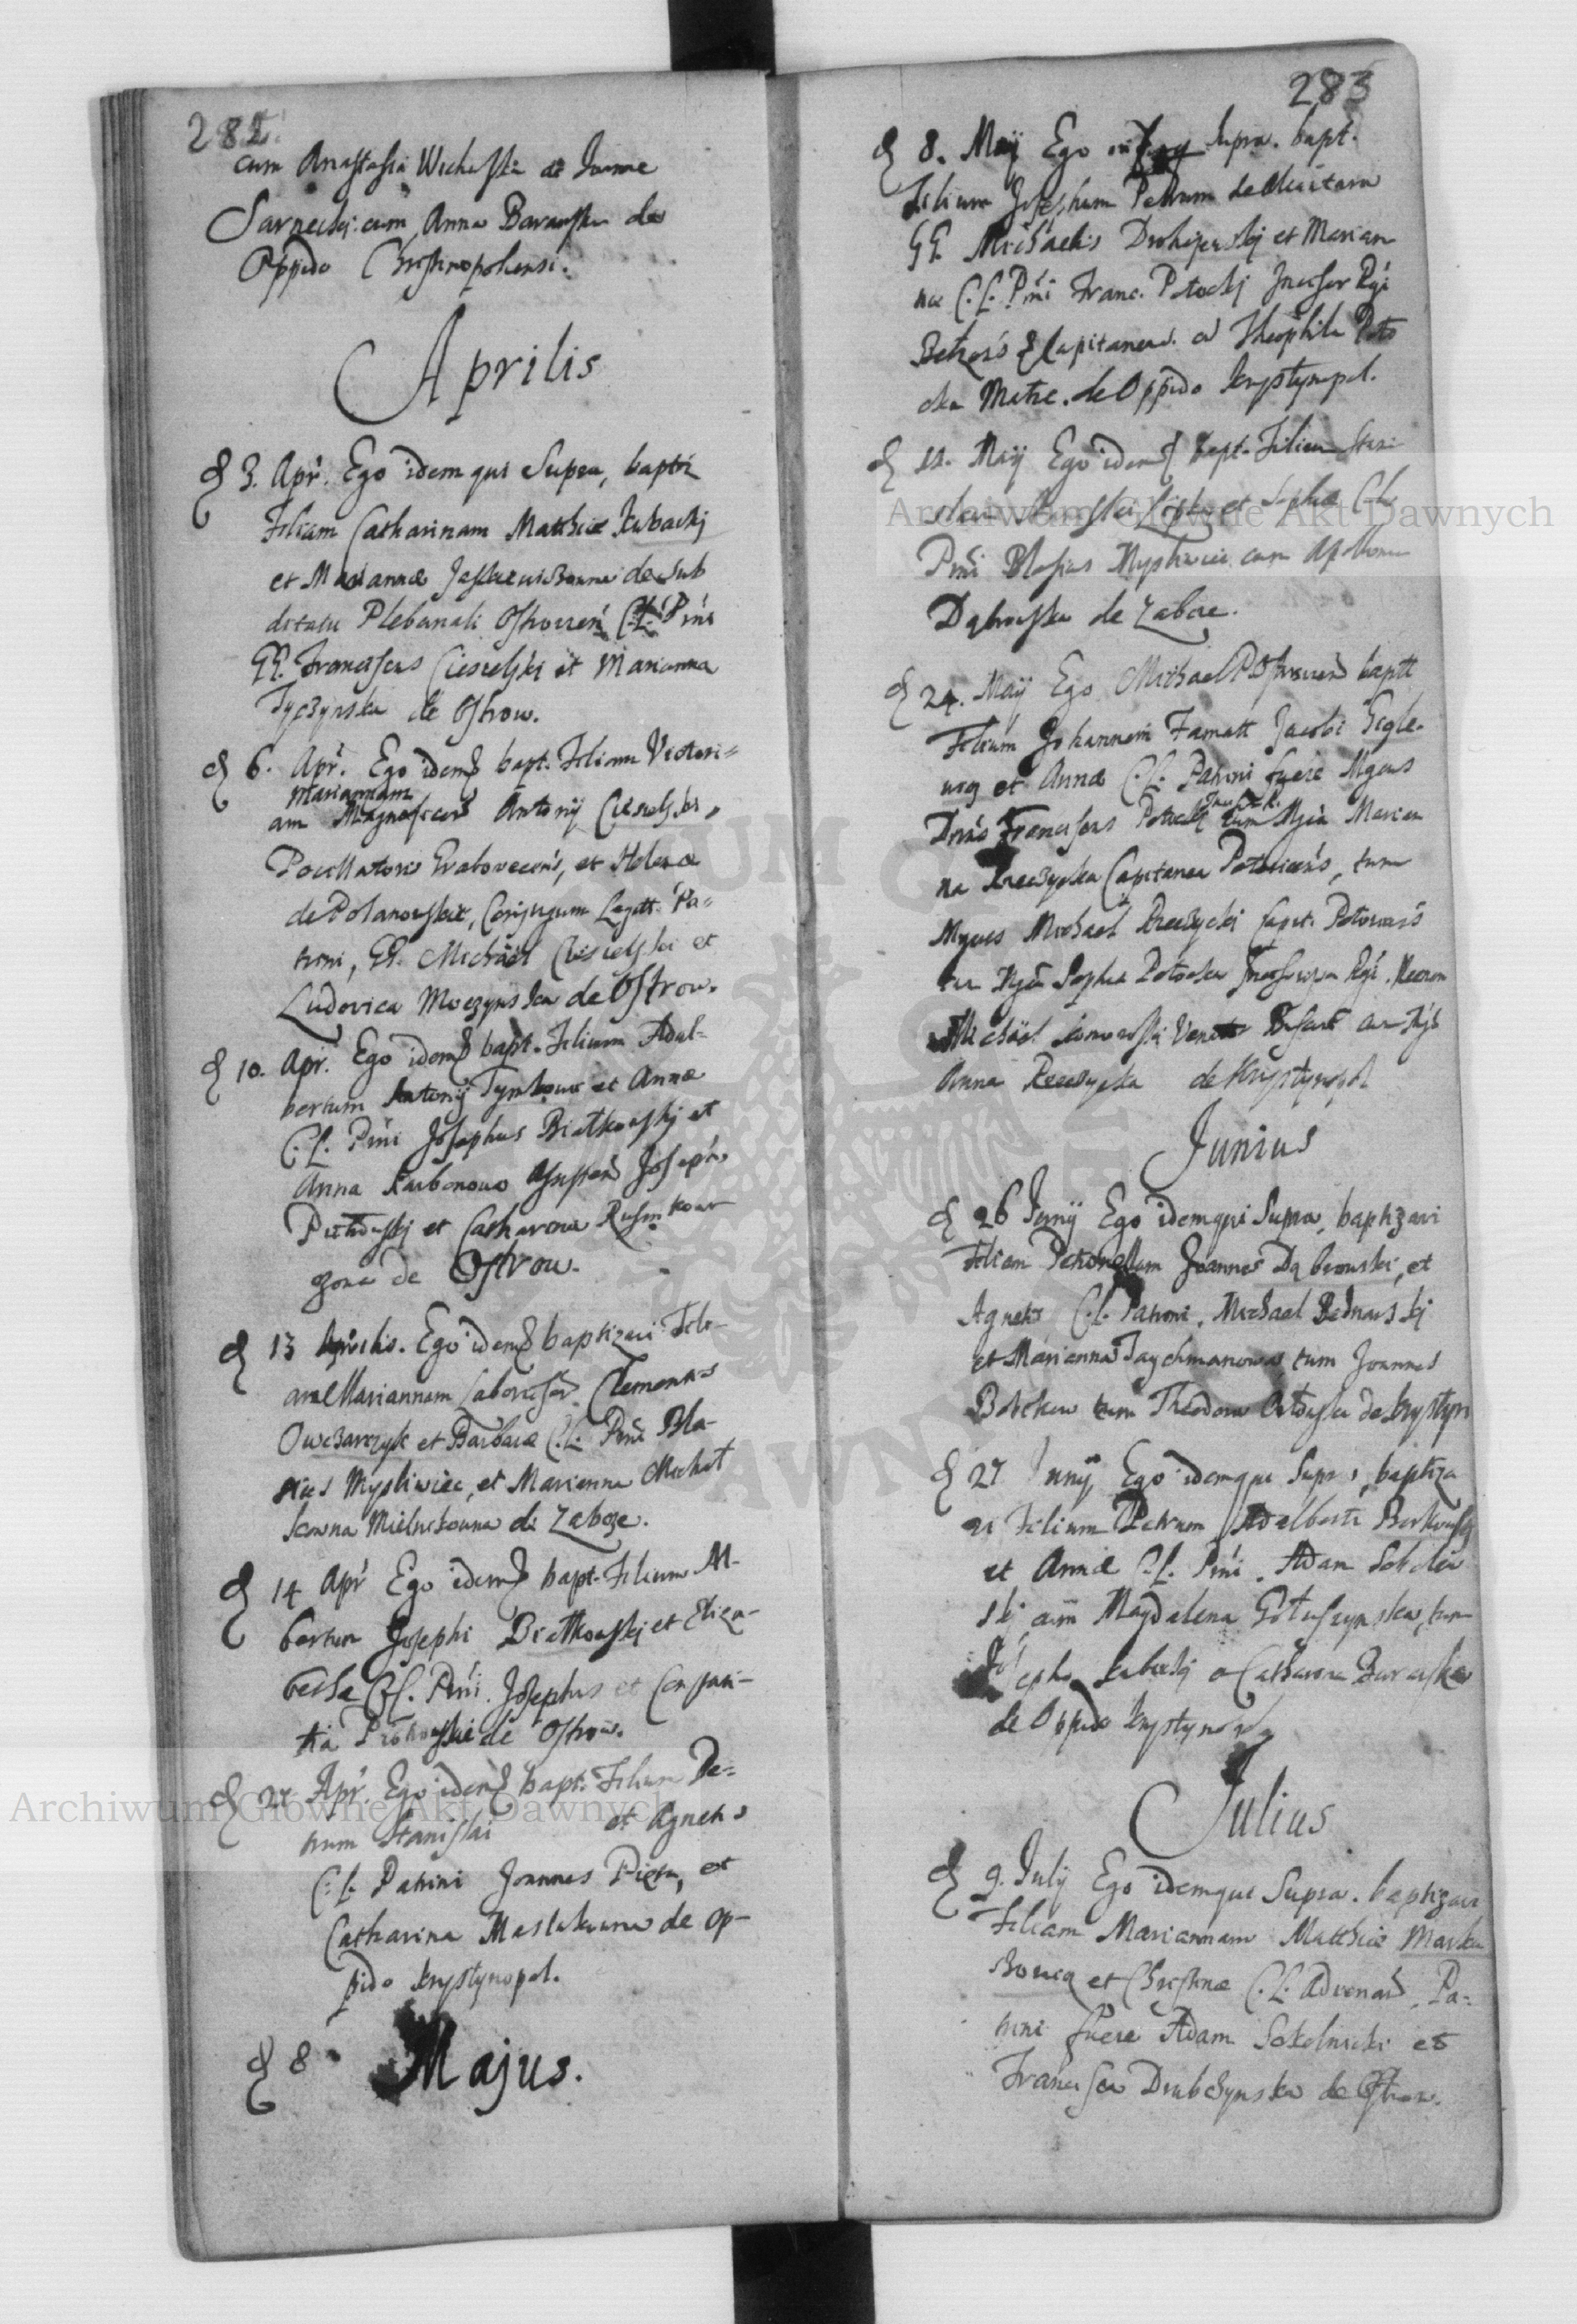 282
cum Anastasia Wichaska et Joanne
Sarnecki cum Anna Baranska de
Oppido Christinopoliensi.
Aprilis
3. Apr. Ego idem qui Supra, baptiz
Filiam Catharinam Matthiæ Kubackj
et Mariannæ Jaskiewiczowna de Sub
ditatu Plebanali Ostrovien C.L. Prni
GG. Franciscus Ciesielski et Marianna
Tyczynska de Ostrow.
6. Apr. Ego idem bapt. Filiam Victori=
Mariannam
am Magnificor Antonij Ciesielski,
Pocillatoris Grabovecens, et Helenæ
de Polanowskie, Conjugum Legitt. Pa=
trini, GG. Michael Ciesielski et
Ludovica Moczynska de Ostrow.
10. Apr. Ego idem bapt. Filium Adal-
bertum Antonij Tymkow et Annæ
C.L. Prni Josephus Białkowskj et
Anna Karbonowa Assisten Joseph,
et Catharina
de Ostrow.
13 Aprilis. Ego idem baptizavi Fili-
am Mariannam Laborios Clementis
Owczarczyk et Barbaræ C.L. Prni Bla-
sius Mysliwiec, et Marianna Michał
Mielnikowna de Zabcze.
14 Apr Ego idem bapt. Filium Al-
bertum Josephi Białkowskj et Eliza-
betha C.L. Prni. Josephus et Constan-
tia de Ostrow.
27 Apr. Ego idem bapt. Filium Pe-
trum Stanislai et Agnetis
C.L. Patrini Joannes Pieta, et
Catharina Maslakowna de Op-
pido Krystynopol.
8 Majus.
283
8. Maij Ego Supra. bapt.
Filium Josephum Petrum de
GG. Michaelis Drohojewskj et Marian
næ C.L. Prni Franc. Potockj Incisor Rgi
Belzens Capitaneus. et Theophila Poto
cka Matre. de Oppido Krystynopol.
11. Maij Ego idem bapt. Filium Stani
et Sophiæ C.L.
Prni Blasius Mysliwiec cum Apollonia
Dąbrowska de Zabcze.
24. Maij Ego Michael baptt
Filium Johannem Famatt Jacobi
et Annæ C.L. Patrini fuere Mgcus
Dnus Franciscus Potocki cum Mgca Marian
na Rzeczycka Capitanea tum
Mgcus Michael Rzeczycki Capit.
cu Mgca Sophia Potocka Rgi.
Michael
Anna Rzeczycka de Krystynopol
Junius
26 Junij Ego idem qui Supra, baptizavi
Filiam Petronellam Joannes Dąbrowski, et
Agnetis C.L. Patroni, Michael Bednarskj
et Marianna Taychmanowa, tum Joannes
cum Theodora de Krystyn
27 Junij Ego idem qui Supra, baptiza
vi Filium Petrum Adalberti Borkowskj
et Annæ C.L. Prni. Adam Sokolni
skj cum Magdalena Gołuszynska, tum
Joseph Kubickj et Catharina Baranska
de Oppido Krystynop
Julius
9. Julij Ego idemque Supra. baptizavi
Filiam Mariannam Matthiæ
et Christinæ C.L. Advenar. Pa=
trini fuere Adam Sokolnicki et
Francisca Drubczynska de Ostrow.
Archiwum Główne Akt Dawnych
Archiwum Główne Akt Dawnych